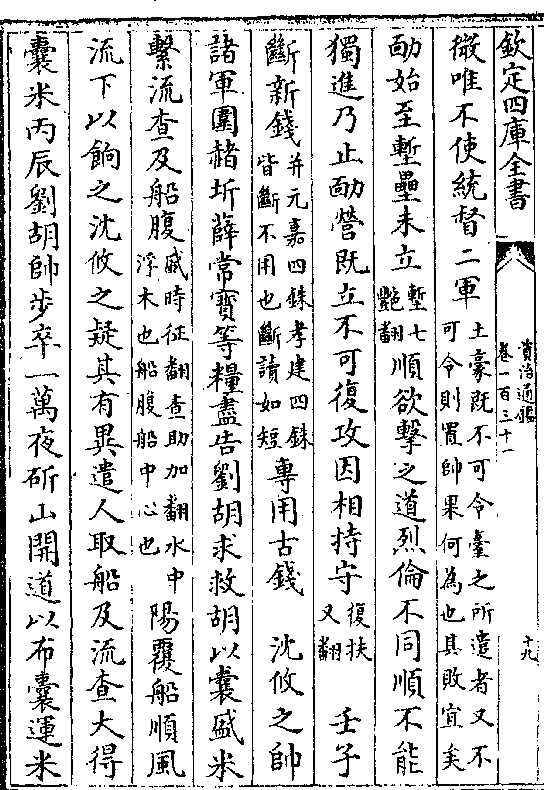 欽定四庫全書
資治通鑑
卷一百三十一
十九
徽唯不使統督二軍土豪既不可令臺之所遣者又不可令則置帥果何為也其敗宜矣
勔始至塹壘未立塹七艷翻順欲擊之道烈倫不同順不能
獨進乃止勔營既立不可復攻因相持守復扶又翻 壬子
斷新錢并元嘉四銖孝建四銖皆斷不用也斷讀如短專用古錢 沈攸之帥
諸軍圍赭圻薛常寶等糧盡告劉胡求救胡以囊盛米
繫流查及船腹盛時征翻查助加翻水中浮木也船腹船中心也陽覆船順風
流下以餉之沈攸之疑其有異遣人取船及流查大得
囊米丙辰劉胡帥步卒一萬夜斫山開道以布囊運米